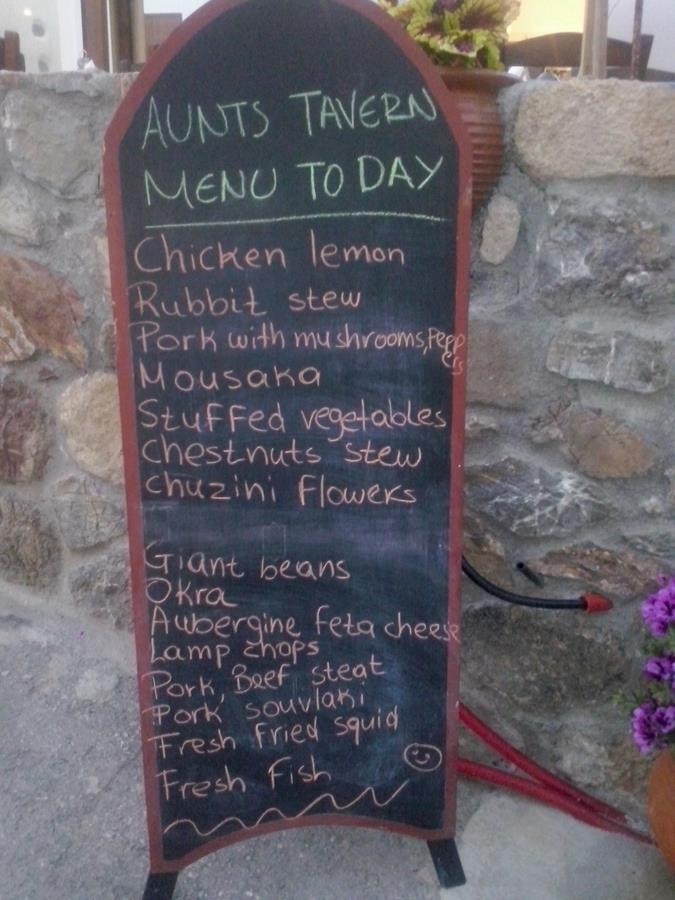 AUNTS TAVERN
MENU TODAY
Chicken lemon
Rubbit stew
Pork with mushrooms, Pepp
ers
Mousaka
Stuffed vegetables
Chestnuts stew
Chuzini Flowers
Giant beans
Okra
Awbergine feta cheese
Lamp chops
Pork, Beef steat
Pork souvlaki
Fresh fried squid
Fresh fish